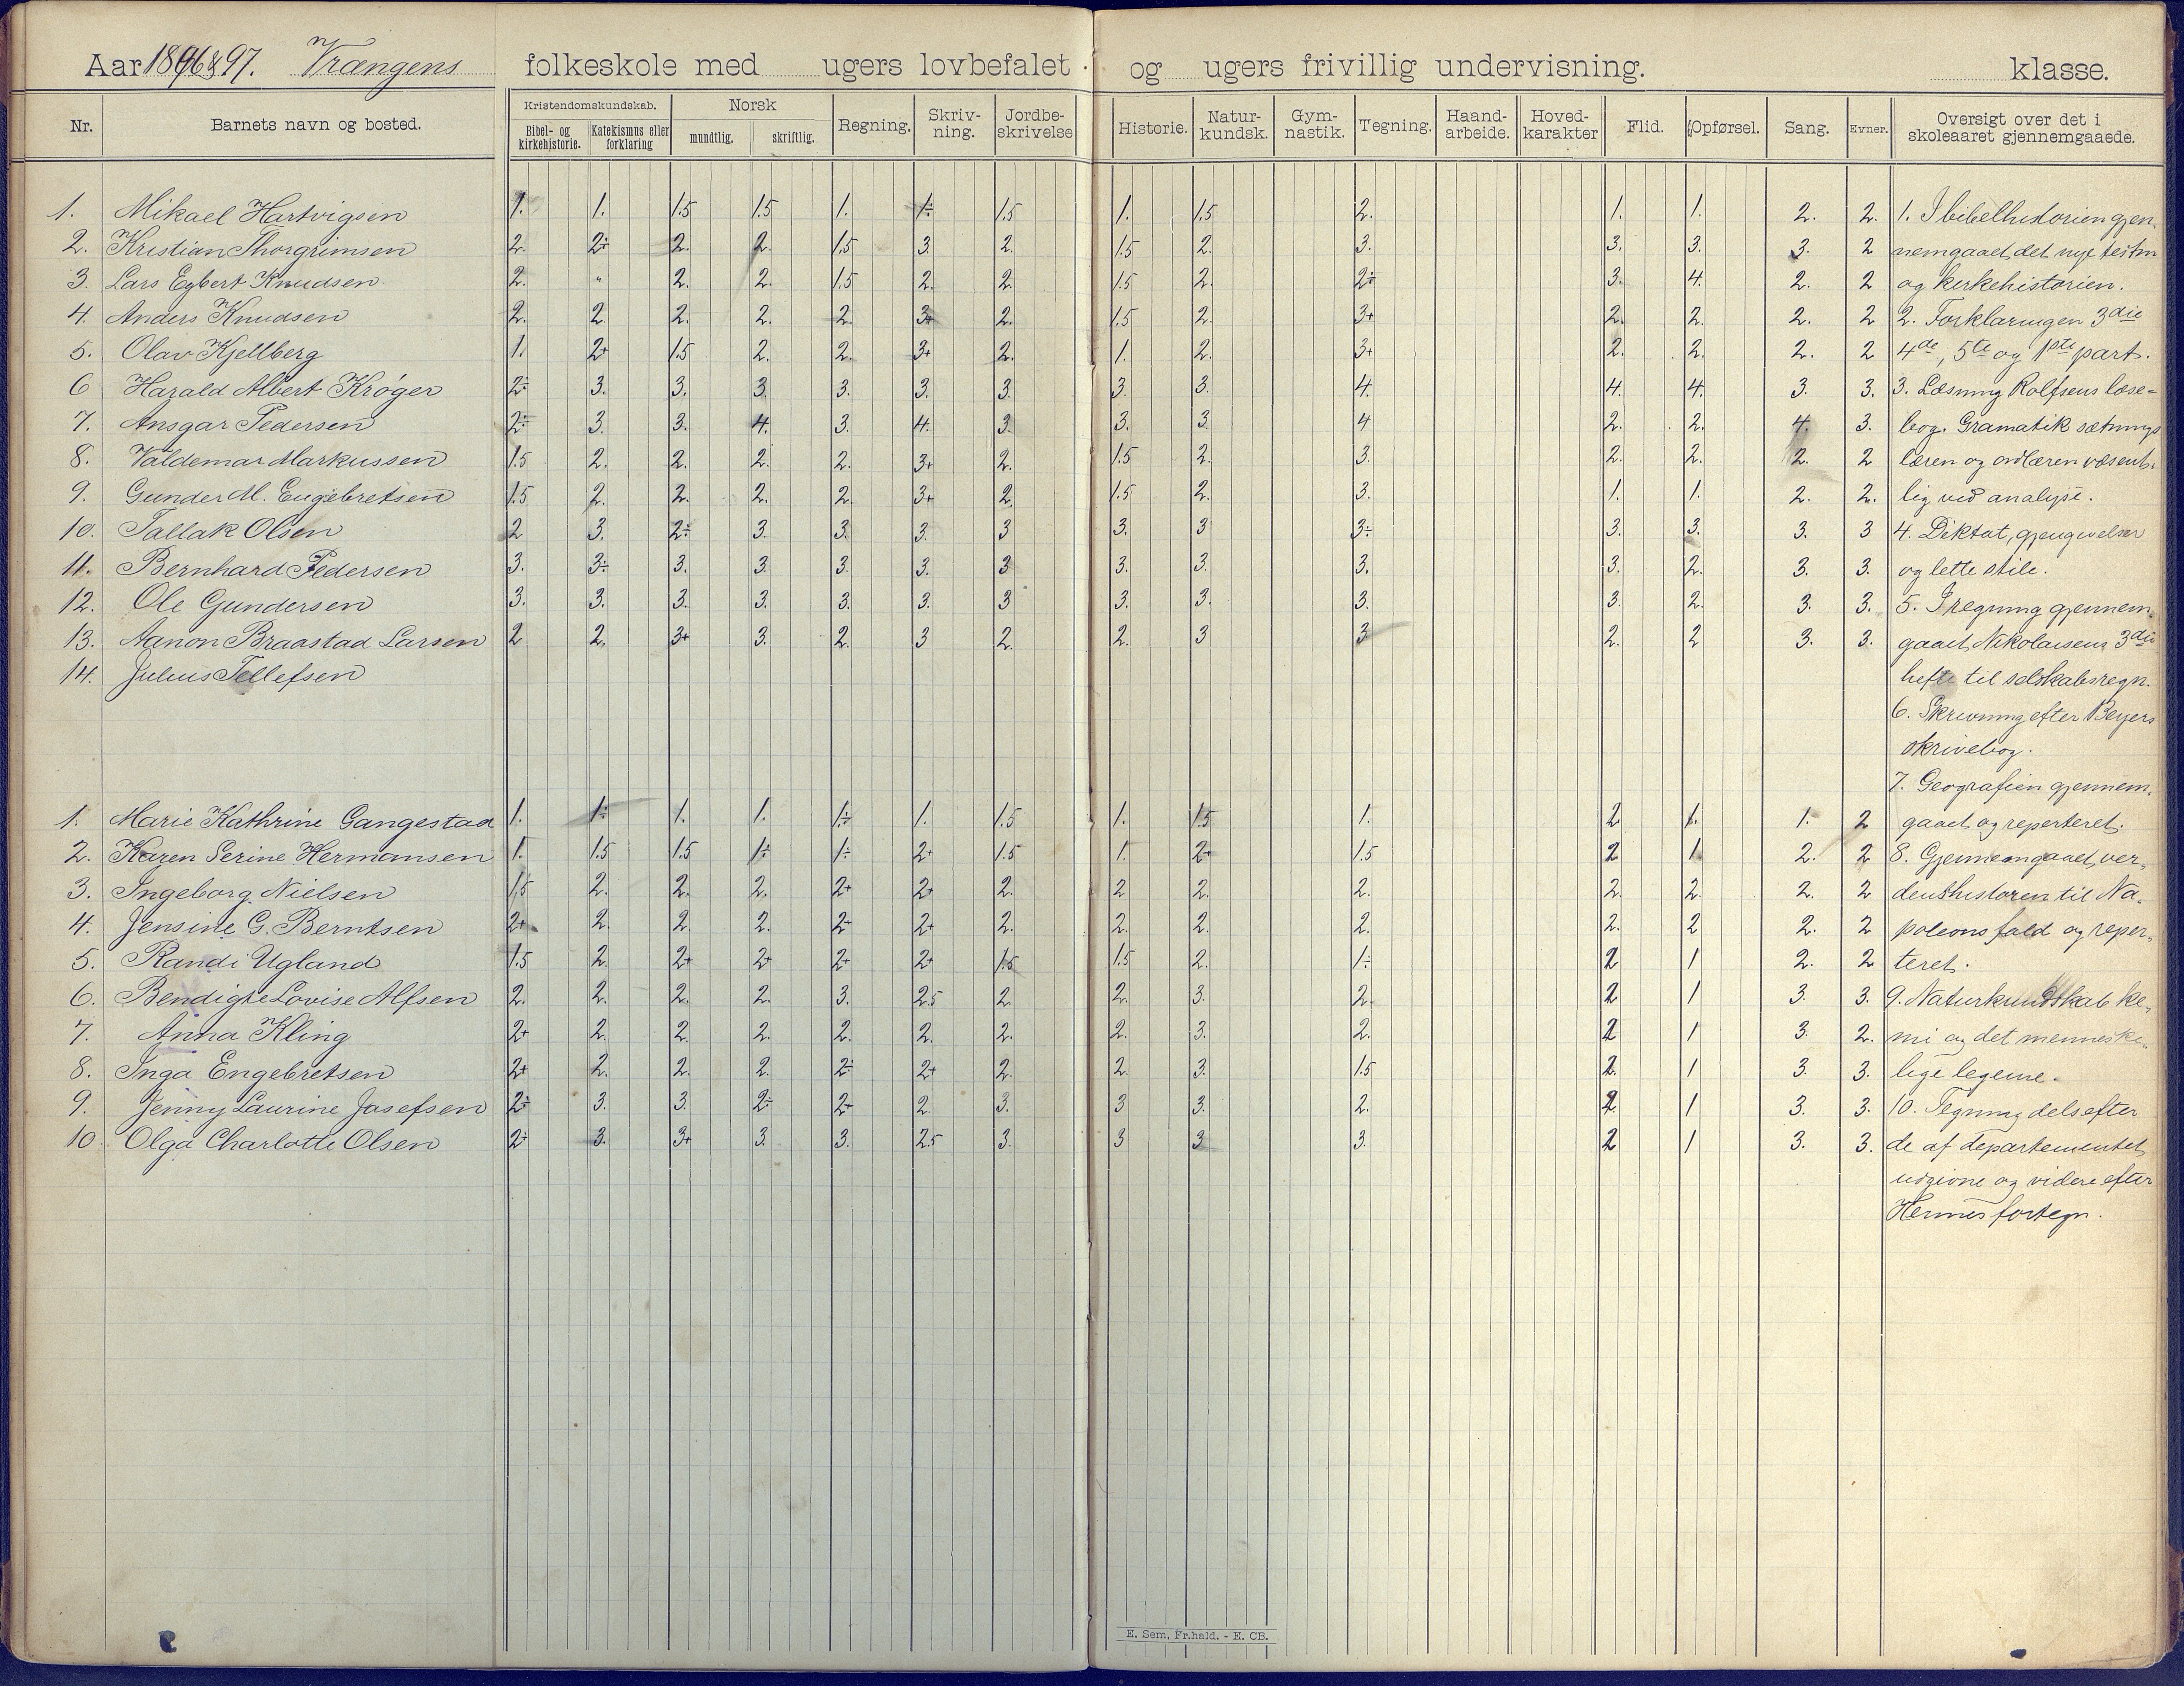 Aar 1896 & 97. Vrængens folkeskole med ugers lovbefalet og ugers frivillig undervisning. klasse.
Nr. Barnets navn og bosted. Kristendomskundskab. Bibel- og kirkehistorie. Katekismus eller forklaring Norsk mundtlig. skriftlig. Regning. Skriv-ning. Jordbe-skrivelse Historie. Natur-kundsk. Gym-nastik. Tegning. Haand-arbeide. Hoved-karakter Flid. Opførsel. Sang. Evner. Oversigt over det i skoleaaret gjennemgaaede.
1. Mikael Hartvigsen 1. 1. 1.5 1.5 1. 1÷ 1.5 1. 1.5 2. 1. 1. 2. 2. 1. I bibelhistorien gjen-
2. Kristian Thorgrimsen 2. 2÷ 2. 2. 1.5 3. 2. 1.5 2. 3. 3. 3. 3. 2 nemgaaet det nye testm
3. Lars Egbert Knudsen 2. " 2. 2. 1.5 2. 2. 1.5 2. 2÷ 3. 4. 2. 2 og kirkehistorien.
4. Anders Knudsen 2. 2. 2. 2. 2. 3+ 2. 1.5 2. 3+ 2. 2. 2. 2 2. Forklaringen 3die
5. Olav Kjellberg 1. 2+ 1.5 2. 2. 3+ 2. 1. 2. 3+ 2. 2. 2. 2 4de, 5te og 1ste part.
6 Harald Albert Krøger 2÷ 3. 3. 3. 3. 3. 3. 3. 3. 4. 4. 4. 3. 3. 3. Læsning Rolfsens læse=
7. Ansgar Pedersen 2÷ 3. 3. 4. 3. 4. 3. 3. 3. 4 2. 2. 4. 3. bog. Gramatik sætnings
8. Valdemar Markussen 1.5 2. 2. 2. 2. 3+ 2. 1.5 2. 3. 2. 2. 2. 2 læren og ordlæren væsent-
9. Gunder M. Engebretsen 1.5 2. 2. 2. 2. 3+ 2. 1.5 2. 3. 1. 1. 2. 2. lig ved analyse.
10. Tallak Olsen 2 3. 2÷ 3. 3. 3. 3 3. 3 3÷ 3. 3. 3. 3 4. Diktat, gjengivelser
11. Bernhard Pedersen 3. 3÷ 3. 3. 3. 3. 3 3. 3. 3. 3. 2. 3. 3. og lette stile.
12. Ole Gundersen 3. 3. 3. 3. 3. 3. 3 3. 3. 3. 3. 2. 3. 3. 5. I regning gjennem
13. Aanon Braastad Larsen 2 2. 3+ 3. 2. 3 2. 2. 3 3 2. 2 3. 3. gaaet Nikolaisens 3die
14. Julius Tellefsen hefte til selskabsregn.
6. Skrivning efter Beyers
skrivebog.
7. Geografien gjennem-
1. Marie Kathrine Gangestad 1. 1÷ 1. 1. 1÷ 1. 1.5 1. 1.5 1. 2 1. 1. 2 gaaet og reperteret.
2. Karen Serine Hermansen 1. 1.5 1.5 1÷ 1÷ 2+ 1.5 1. 2+ 1.5 2 1 2. 2 8. Gjennemgaaet ver-
3. Ingeborg Nielsen 1.5 2. 2. 2. 2+ 2+ 2. 2 2. 2. 2. 2. 2. 2 denshistoren til Na-
4. Jensine G. Berntsen 2+ 2. 2. 2. 2÷ 2+ 2. 2. 2. 2. 2. 2 2. 2 poleons fald og reper-
5. Randi Ugland 1.5 2. 2+ 2+ 2+ 2+ 1.5 1.5 2. 1÷ 2 1 2. 2 teret.
6. Bendigte Lovise Alfsen 2. 2. 2. 2. 3. 2.5 2. 2. 3. 2. 2 1 3. 3. 9. Naturkundskab ke-
7. Anna Kling 2+ 2. 2. 2. 2. 2. 2. 2. 3. 2. 2 1 3. 2. mi og det menneske-
8. Inga Engebretsen 2+ 2. 2. 2. 2÷ 2+ 2. 2. 3. 1.5 2 1 3. 3. lige legeme.
9. Jenny Laurine Josefsen 2÷ 3. 3. 2÷ 2+ 2. 3. 3 3. 2. 2 1 3. 3. 10. Tegning dels efter
10. Olga Charlotte Olsen 2÷ 3. 3+ 3. 3. 2.5 3. 3 3 3. 2 1 3. 3. de af departementet
udgivne og videre efter
fortegn.
E. Sem, Fr.hald. - E. CB.